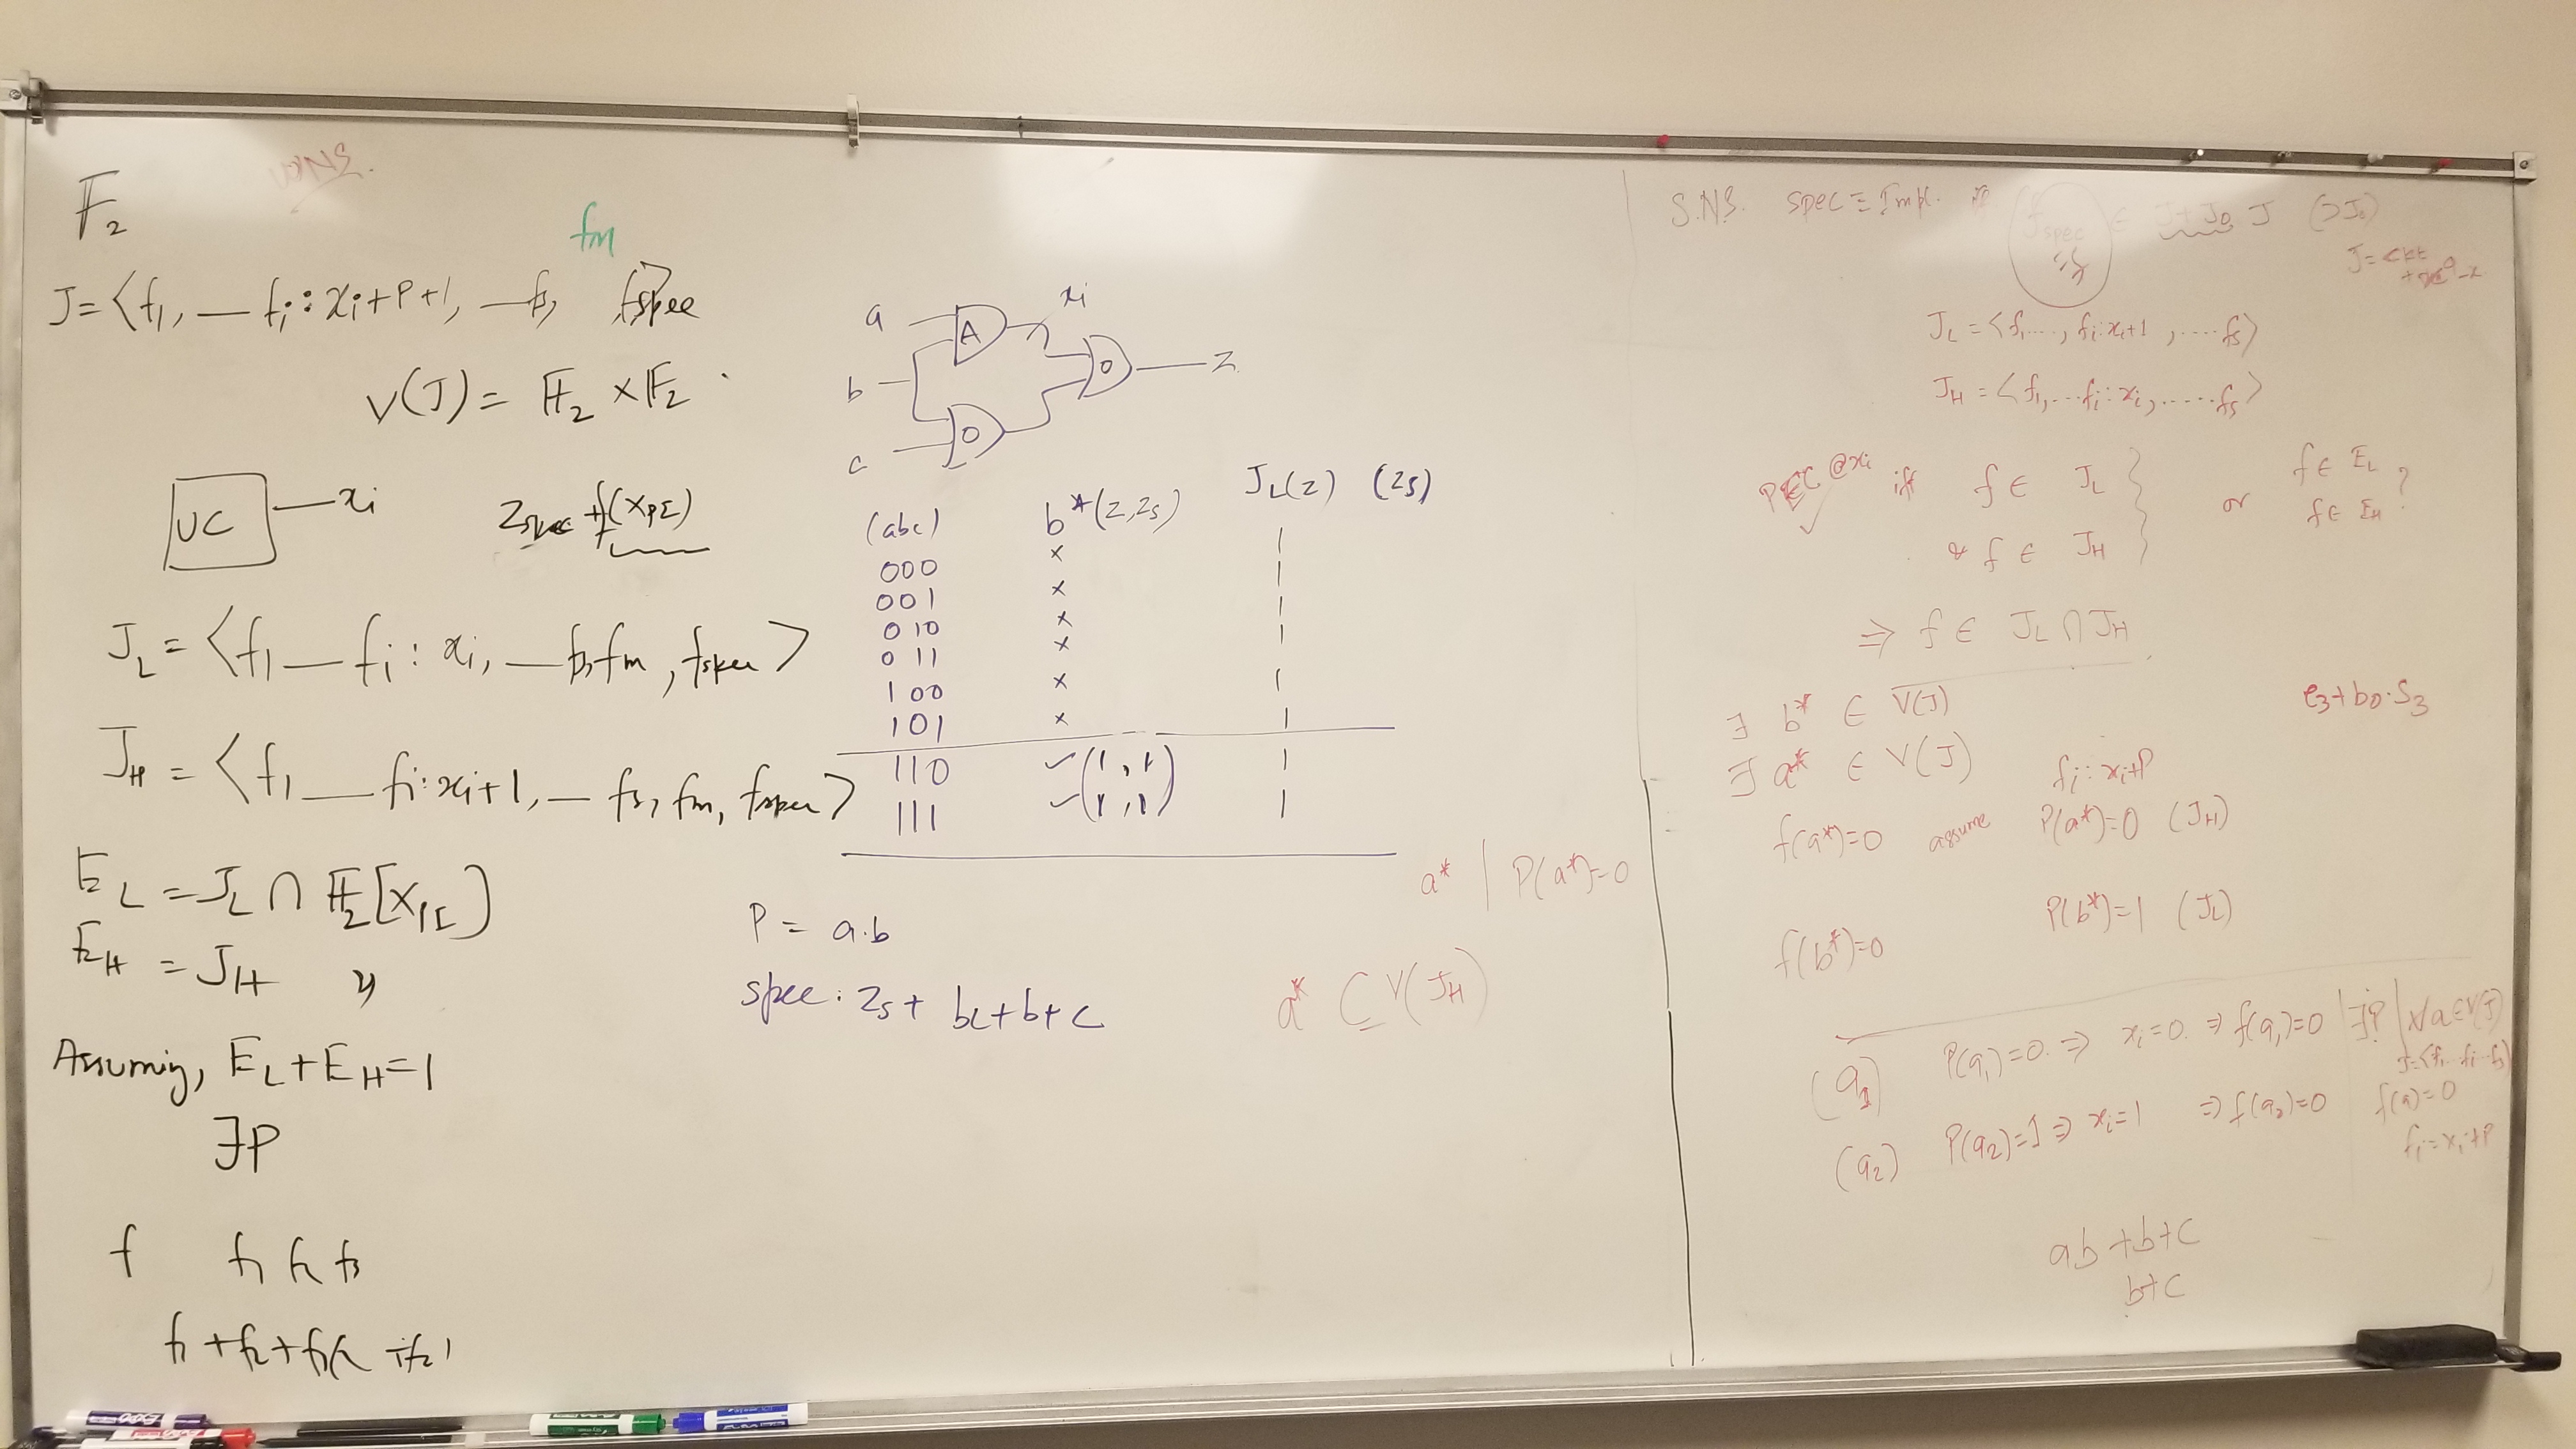 F₂
fm
J = ⟨f₁, — fᵢ : xᵢ + P + 1, — fs, fspec⟩
V(J) = F₂ × F₂
UC — xᵢ
zspec + f(X_PI)
J_L = ⟨f₁ — fᵢ : xᵢ, — fs, fm, fspec⟩
J_H = ⟨f₁ — fᵢ : xᵢ+1, — fs, fm, fspec⟩
E_L = J_L ∩ F₂[X_PI]
E_H = J_H 〃
Assuming, E_L + E_H = 1
∃P
f f₁ f₂ f₃
a
b
c
A
O
O
xᵢ
z
(abc) b*(z,zs) J_L(z) (zs)
1
000 × 1
001 × 1
010 × 1
011 × 1
100 × 1
101 × 1
110 ✓ (1,1) 1
111 ✓ (1,1) 1
P = a.b
spec: zs + bc+b+c
a* | P(a*)=0
a* ⊆ V(J_H)
S.N.S. spec ≡ Impl. iff fspec ∈ J+J₀ J (⊃J₀)
J_L = ⟨f₁...., fᵢ:xᵢ+1, .... fs⟩
J_H = ⟨f₁,...fᵢ:xᵢ, ..... fs⟩
PEC @xᵢ iff f ∈ J_L
& f ∈ J_H
or f ∈ E_L
f ∈ E_H ?
⇒ f ∈ J_L ∩ J_H
∃ b* ∈ V(J)
e₃+b₀.s₃
∃ a* ∈ V(J) fᵢ: xᵢ+P
f(a*)=0 assume P(a*)=0 (J_H)
f(b*)=0 P(b*)=1 (J_L)
(a₁) P(a₁)=0. ⇒ xᵢ=0. ⇒ f(a₁)=0 | ∃P | ∀a∈V(J)
J=⟨f₁..fᵢ..fs⟩
(a₂) P(a₂)=1 ⇒ xᵢ=1 ⇒ f(a₂)=0 f(a)=0
fᵢ=xᵢ+P
ab+b+c
b+c